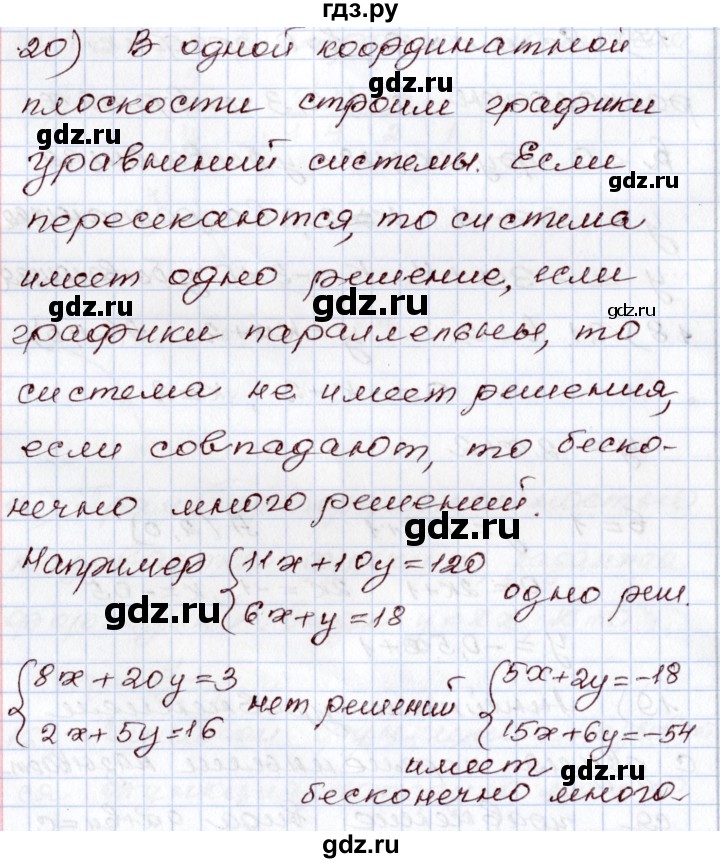 гдз.ру
20) В одной координатной
плоскости строим графики
уравнений системы. Если
пересекаются, то система
имеет одно решение, если
графики параллельны, то
система не имеет решения,
если совпадают, то беско-
нечно много решений.
Например {11x+10y=120
{6x+y=18
одно реш.
{8x+20y=3
{2x+5y=16
нет решений
{5x+2y=-18
{15x+6y=-54
имеет
бесконечно много
gdz.ru
gdz.ru
gdz.ru
gdz.ru
gdz.ru
gdz.ru
gdz.ru
gdz.ru
gdz.ru
gdz.ru
gdz.ru
gdz.ru